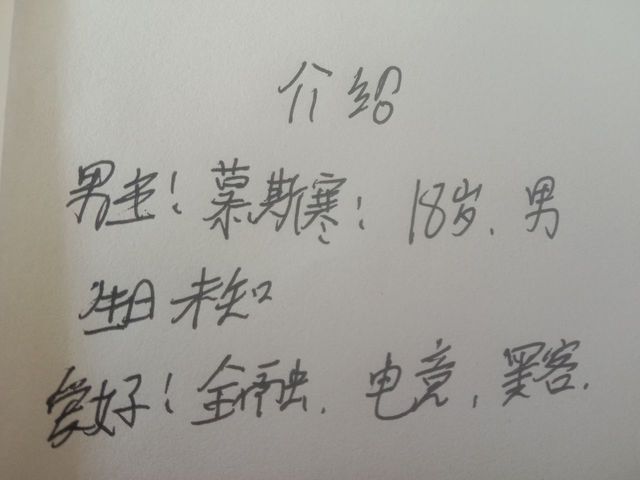 介绍
男主！慕斯寒：18岁、男
生日未知
爱好！金融、电竞、黑客.